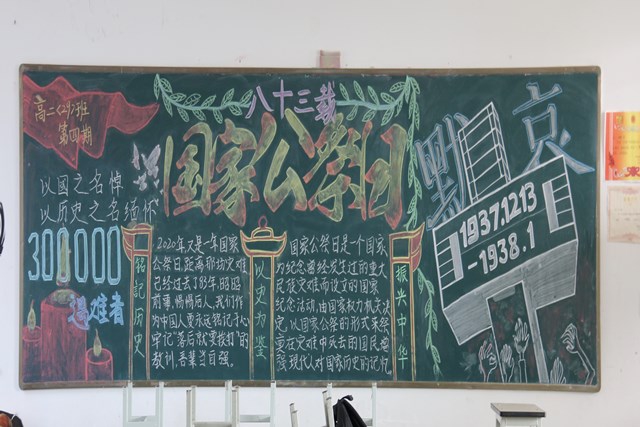 高二(29)班
第四期
八十三载
国家公祭日
默哀
以国之名悼
以历史之名缅怀
300000
遇难者
铭記历史
2020年又是一年国家
公祭日,距离那场灾难
已经过去了83年,
前事,惕惕后人,我们作
为中国人要永远铭记于心
牢记"落后就要挨打"的
教训,吾辈当自强。
以史为鉴
国家公祭日是一个国家
为纪念曾经发生过的重大
民族灾难而设立的国家
纪念活动,由国家权力机关决
定,以国家公祭的形式来祭
奠在灾难中死去的国民,增
强现代人对国家历史的记忆
振兴中华
1937.12.13
-1938.1